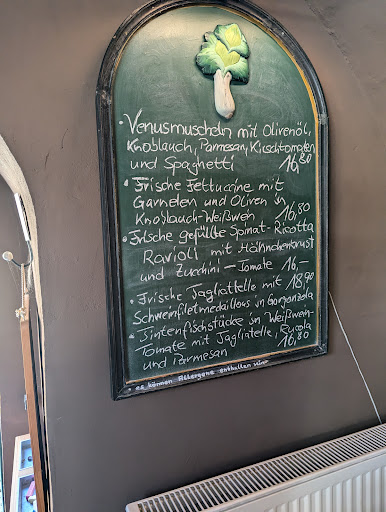 • Venusmuscheln mit Olivenöl,
Knoblauch, Parmesan, Kirschtomaten
und Spaghetti 16,80
• Frische Fettuccine mit
Garnelen und Oliven in
Knoblauch-Weißwein 16,80
• Frische gefüllte Spinat-Ricotta
Ravioli mit Hähnchenbrust
und Zucchini - Tomate 16,-
• Frische Tagliattelle mit 18,90
Schweinfiletmedaillous in Gorgonzola
• Tintenfischstücke in Weißwein-
Tomate mit Tagliattelle, Rucola
und Parmesan 16,80
* es können Allergene enthalten